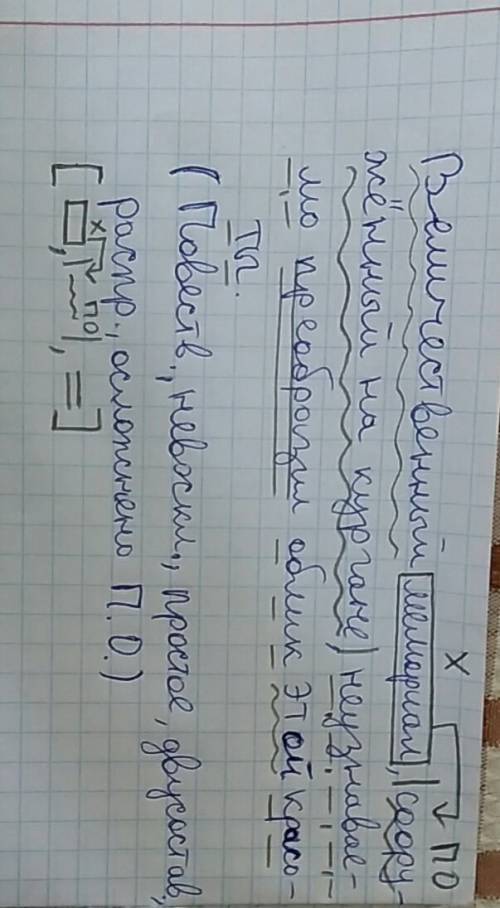 х ПО
Величественный мемориал, | соору-
жённый на кургане, | неузнавае-
мо преобразил облик этой красо-
ты.
(Повеств., невоскл., простое, двусостав,
распр., осложнено П.О.)
х ПО
[ , | |, = ]